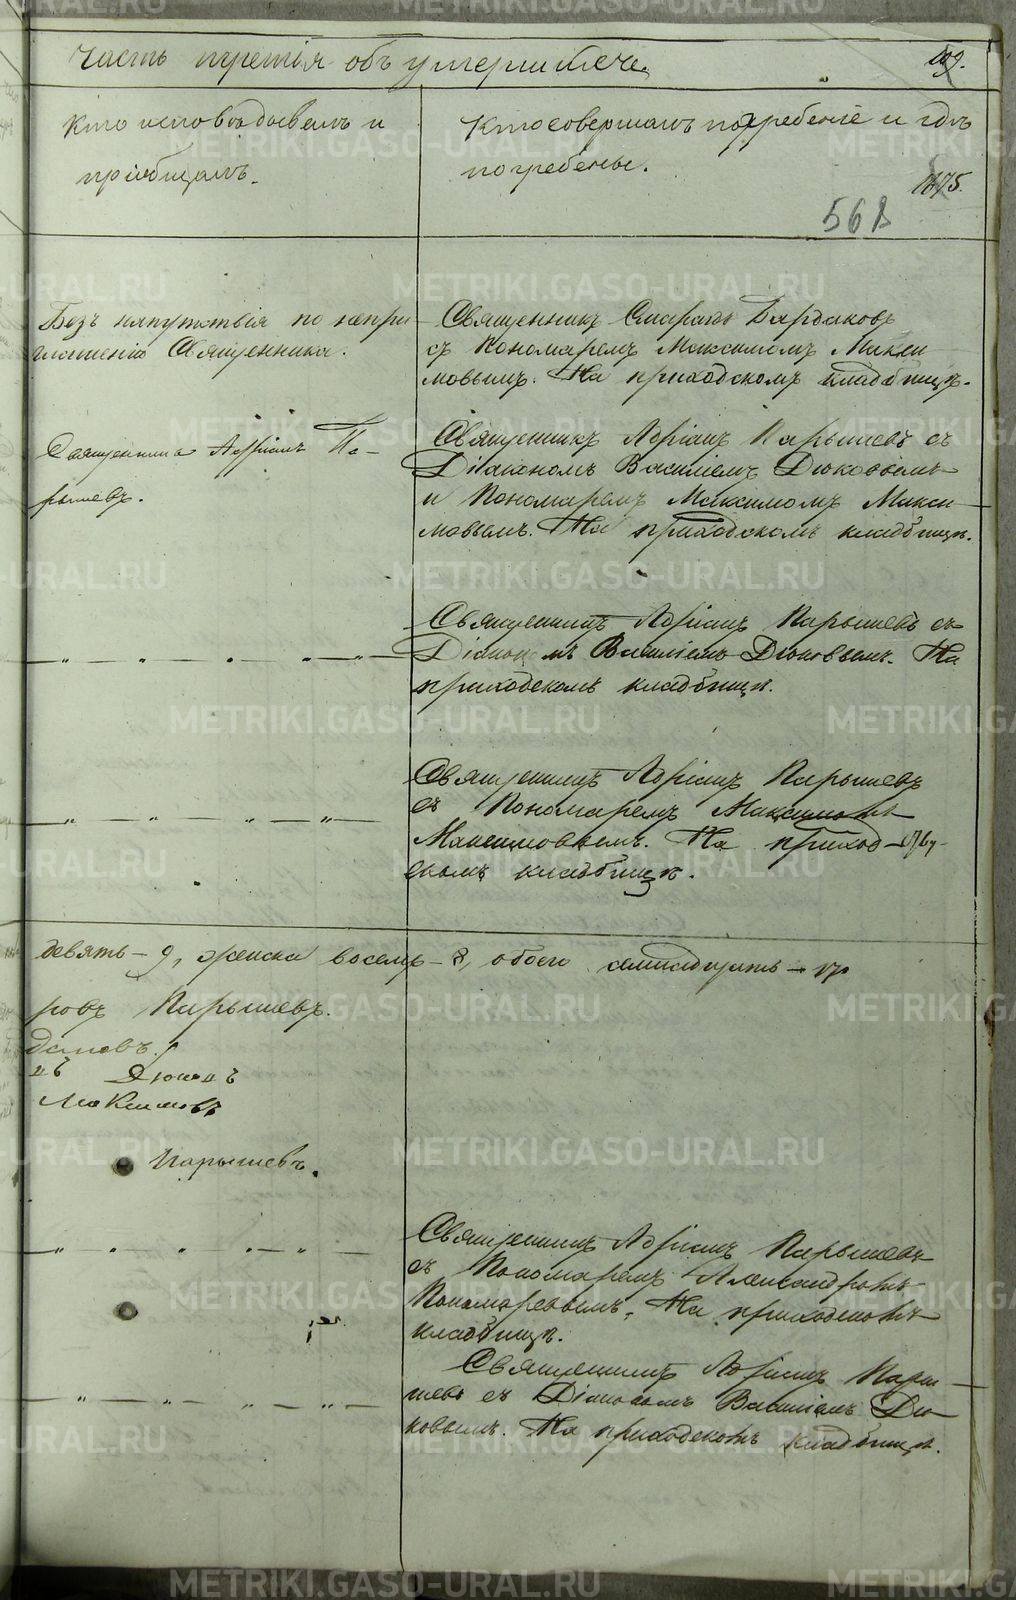 Часть третія объ умершихъ
109.
Кто исповѣдывалъ и
пріобщалъ.
Кто совершалъ погребеніе и гдѣ
погребены.
1875.
568
Безъ напутствія по непри
глашенію Священника.
Священникъ Бардаковъ
съ Пономаремъ Максимомъ Макси
мовымъ. На приходскомъ кладбищѣ.
Священникъ Адріанъ Па-
рышевъ.
Священникъ Адріанъ Парышевъ съ
Діакономъ Василіемъ Дюковымъ
и Пономаремъ Максимомъ Макси
мовымъ. На приходскомъ кладбищѣ.
Священникъ Адріанъ Парышевъ съ
Діакономъ Василіемъ Дюковымъ. На
приходскомъ кладбищѣ.
Священникъ Адріанъ Парышевъ
съ Пономаремъ Максимомъ
Максимовымъ. На приход
скомъ кладбищѣ.
девять - 9, женска восемь - 8, обоего семнадцать - 17
ровъ Парышевъ.
Дюковъ
Максимовъ
Парышевъ.
Священникъ Адріанъ Парышевъ
съ Пономаремъ Александромъ
Пономаревымъ. На приходскомъ
кладбищѣ.
Священникъ Адріанъ Пары
шевъ съ Діакономъ Василіемъ Дю
ковымъ. На приходскомъ кладбищѣ.
METRIKI.GASO-URAL.RU